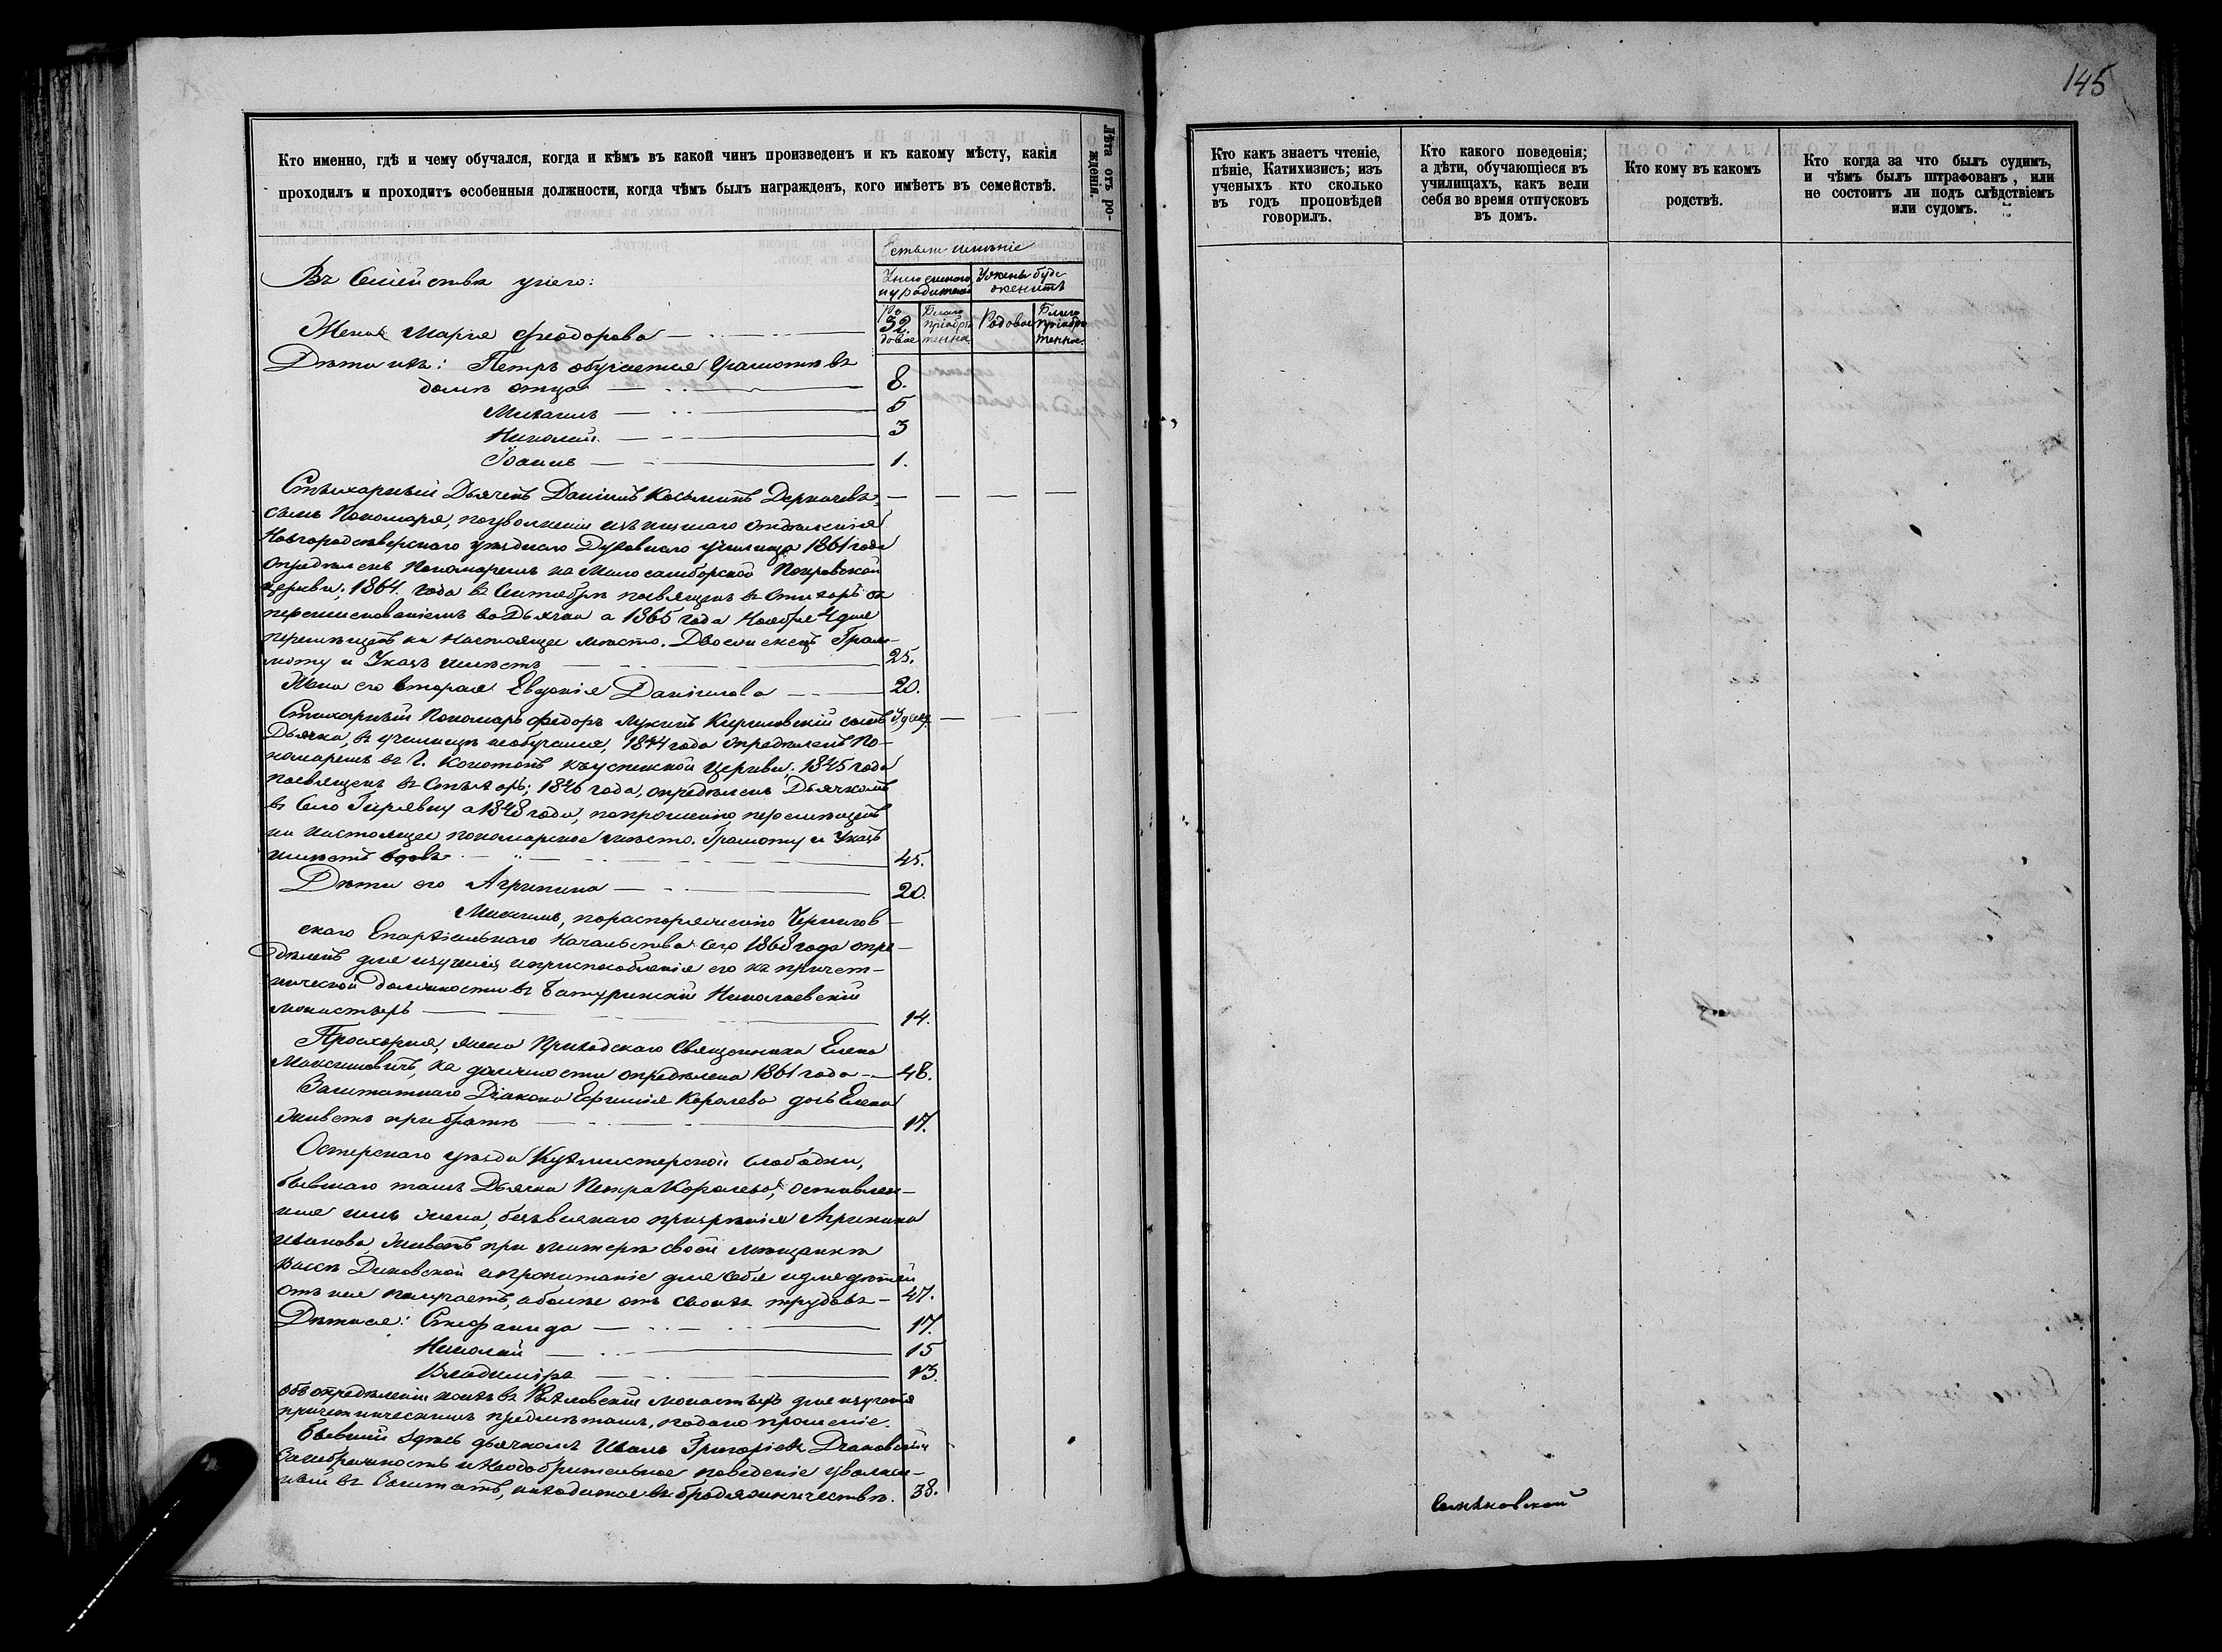 145
Кто именно, гдѣ и чему обучался, когда и кѣмъ въ какой чинъ произведенъ и къ какому мѣсту, какія
проходилъ и проходитъ особенныя должности, когда чѣмъ былъ награжденъ, кого имѣетъ въ семействѣ.
Лѣта отъ ро-
жденія.
Естьли имѣніе
У него самого
и у родителей
У жены буде
женатъ
Ро
довое
Благо
пріобрѣ
тенное
Родовое
Благо
пріобрѣ
тенное
Въ Семействѣ у него:
Жена Марія Феодорова 32.
Дѣти ихъ: Петръ обучается Грамотѣ въ
домѣ отца 8.
Михаилъ 5
Николай 3
Іоаннъ 1.
Стихарный Дьячекъ Даніилъ Косьминъ Деркачевъ,
сынъ Пономаря, по увольненіи изъ низшаго отдѣленія
Новгородсѣверскаго уѣзднаго Духовнаго училища 1861 года
опредѣленъ Пономаремъ къ Малосамборской Покровской
церкви; 1864 года въ Сентябрѣ посвященъ въ Стихарь съ
переименованіемъ во Дьячка а 1865 года Ноября 4 дня
перемѣщенъ на настоящее мѣсто. Грам-
моту и Указъ имѣетъ 25.
Жена его вторая Евдокія Даніилова 20.
Стихарный Пономарь Федоръ Лукинъ Кириловскій сынъ
Дьячка, въ училищѣ не обучался, 1844 года опредѣленъ По-
номаремъ въ г. Конотопъ къ Успенской Церкви; 1845 года
посвященъ въ Стихарь; 1846 года, опредѣленъ Дьячкомъ
въ Село Гирявку а 1848 года, по прошенію перемѣщенъ
на настоящее пономарское мѣсто. Грамоту и Указъ
имѣетъ вдовъ 45.
Дѣти его Агрипина 20.
Максимъ, по распоряженію Чернигов-
скаго Епархіальнаго Начальства сего 1868 года опре-
дѣленъ для изученія и приспособленія его къ причет-
нической должности въ Батуринскій Николаевскій
монастырь 14.
Просхорня, жена Приходскаго Священника Елена
Максимовичъ, къ должности опредѣлена 1861 года 48.
Заштатнаго Діакона Ефимія Королева дочь Елена
живетъ при братѣ 17.
Остерскаго уѣзда Кухмистерской слободки,
бывшаго тамъ Дьячка Петра Королева, оставлен-
ная имъ жена, безъ всякаго призрѣнія Агрипина
Иванова, живетъ при матери своей мѣщанкѣ
Диковской и пропитаніе для себя и для дѣтей
отъ нея получаетъ, а болѣе отъ своихъ трудовъ 47.
Дѣти ея: Стефанида 17.
Николай 15
Владиміръ 13.
объ опредѣленіи коихъ въ Рыхловскій монастырь для изученія
причетническимъ предметамъ, подано прошеніе.
Бывшій здѣсь дьячкомъ Иванъ Григоріевъ Діаковскій
за небрежность и неодобрительное поведеніе уволен-
ный въ Заштатъ, находится въ бродяжничествѣ. 38.
Кто какъ знаетъ чтеніе,
пѣніе, Катихизисъ; изъ
ученыхъ кто сколько
въ годъ проповѣдей
говорилъ.
Кто какого поведенія;
а дѣти, обучающіеся въ
училищахъ, какъ вели
себя во время отпусковъ
въ домъ.
Кто кому въ какомъ
родствѣ.
Кто когда за что былъ судимъ,
и чѣмъ былъ штрафованъ, или
не состоитъ ли подъ слѣдствіемъ
или судомъ.